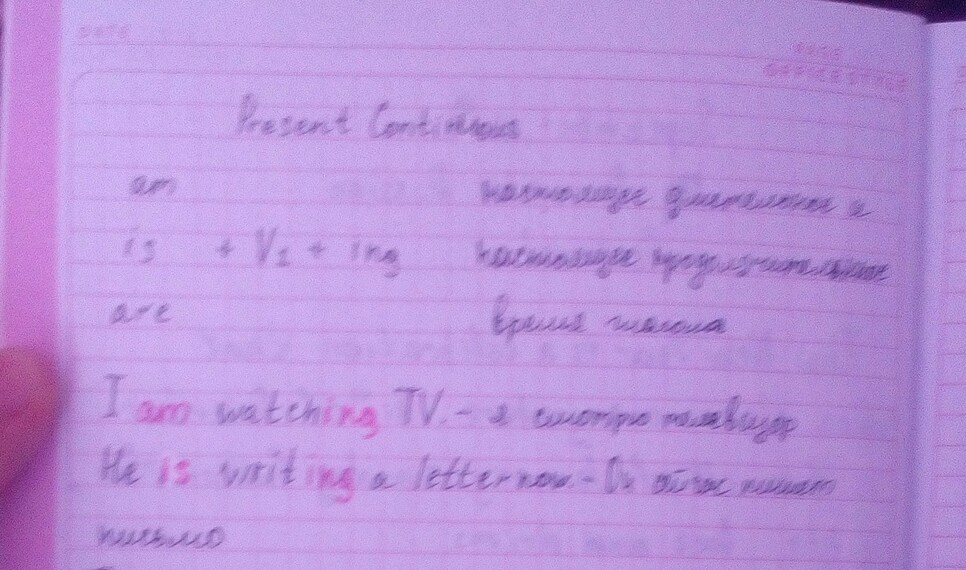 DATE
Present Continuous
am настоящее длительное и
is + V1 + ing настоящее продолжительное
are время глагола
I am watching TV. - я смотрю телевизор
He is writing a letter now. - Он сейчас пишет
письмо